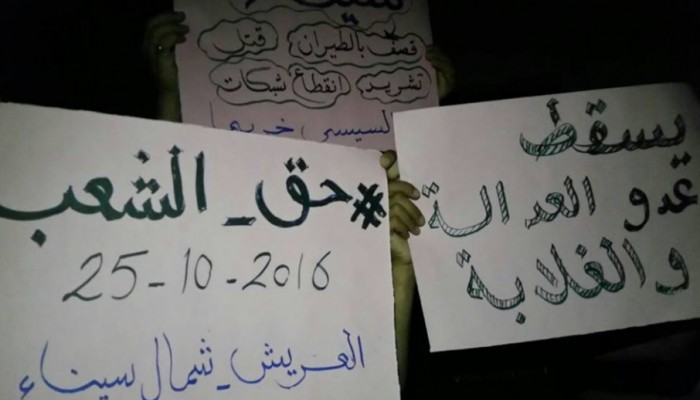 سيناء
قصف بالطيران قتل
تشريد انقطاع شبكات
السيسي خربها
يسقط
عدو العدالة
والغلابة
#حق_الشعب
25-10-2016
العريش_شمال سيناء